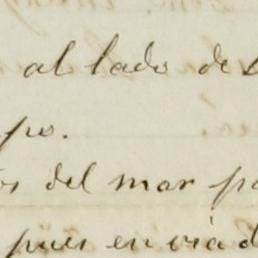 al lado de
po.
os del mar po
pues enviad